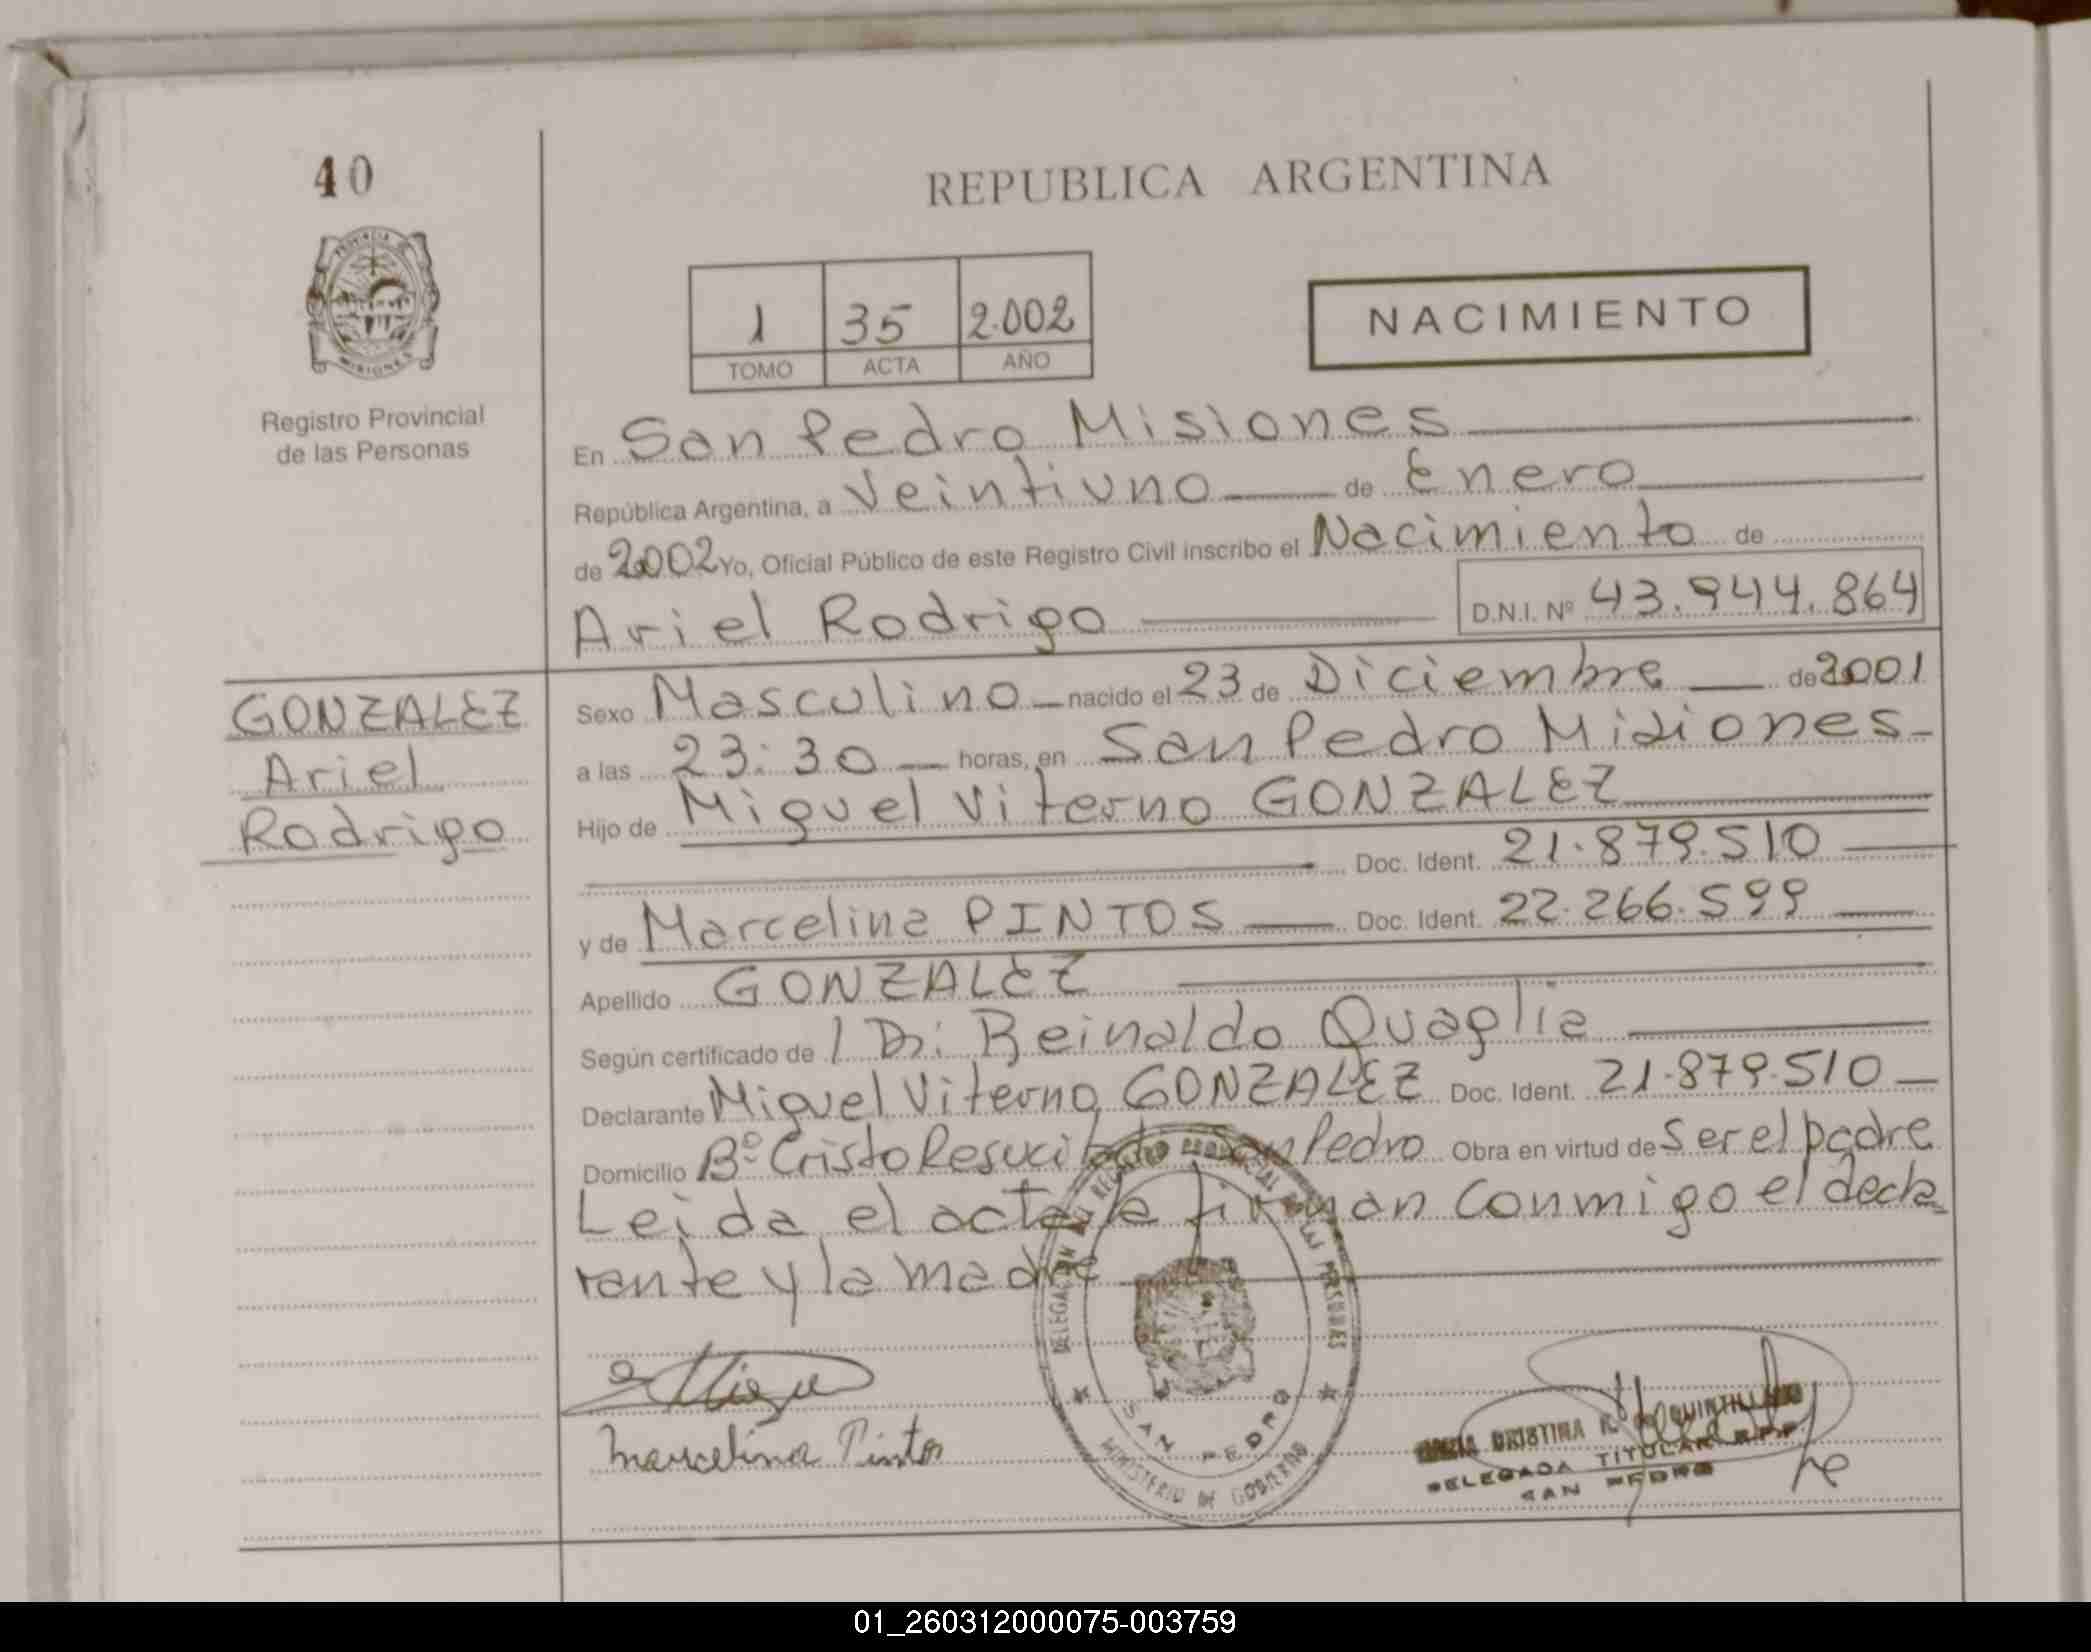 40
REPUBLICA ARGENTINA
PROVINCIA DE
MISIONES
Registro Provincial
de las Personas
1 35 2.002
TOMO ACTA AÑO
NACIMIENTO
En San Pedro Misiones
República Argentina, a Veintiuno de Enero
de 2002 Yo, Oficial Público de este Registro Civil inscribo el Nacimiento de
Ariel Rodrigo D.N.I. Nº 43.944.864
GONZALEZ
Ariel
Rodrigo
Sexo Masculino nacido el 23 de Diciembre de 2001
a las 23:30 horas, en San Pedro Misiones
Hijo de Miguel Viterno GONZALEZ
Doc. Ident. 21.879.510
y de Marcelina PINTOS Doc. Ident. 22.266.599
Apellido GONZALEZ
Según certificado de Reinaldo Quaglia
Declarante Miguel Viterno GONZALEZ Doc. Ident. 21.879.510
Domicilio Bº Cristo Resucitado San Pedro Obra en virtud de Ser el padre
Leida el acta la firman conmigo el decla
rante y la madre
DELEGACION DEL REGISTRO PROVINCIAL DE LAS PERSONAS
SAN PEDRO
MINISTERIO DE GOBIERNO
Marcelina Pintos
CRISTINA R. de QUINTILLAN
DELEGADA TITULAR R.P.P.
SAN PEDRO
01_260312000075-003759